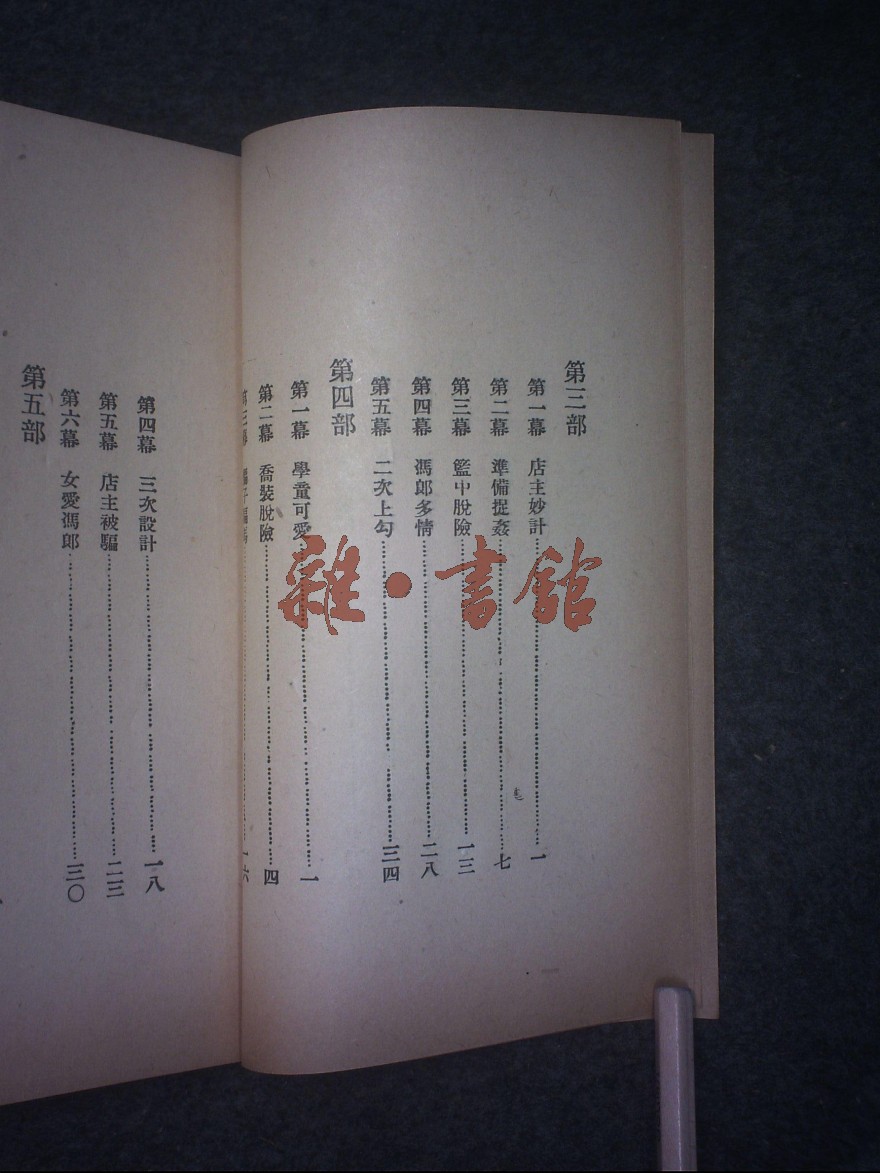 第三部
第一幕 店主妙計 一
第二幕 準備捉姦 七
第三幕 籃中脫險 一三
第四幕 馮郎多情 二八
第五幕 二次上勾 三四
第四部
第一幕 學童可愛 一
第二幕 喬裝脫險 四
第三幕 一六
第四幕 三次設計 一八
第五幕 店主被騙 二三
第六幕 女愛馮郎 三〇
第五部
雜·書館